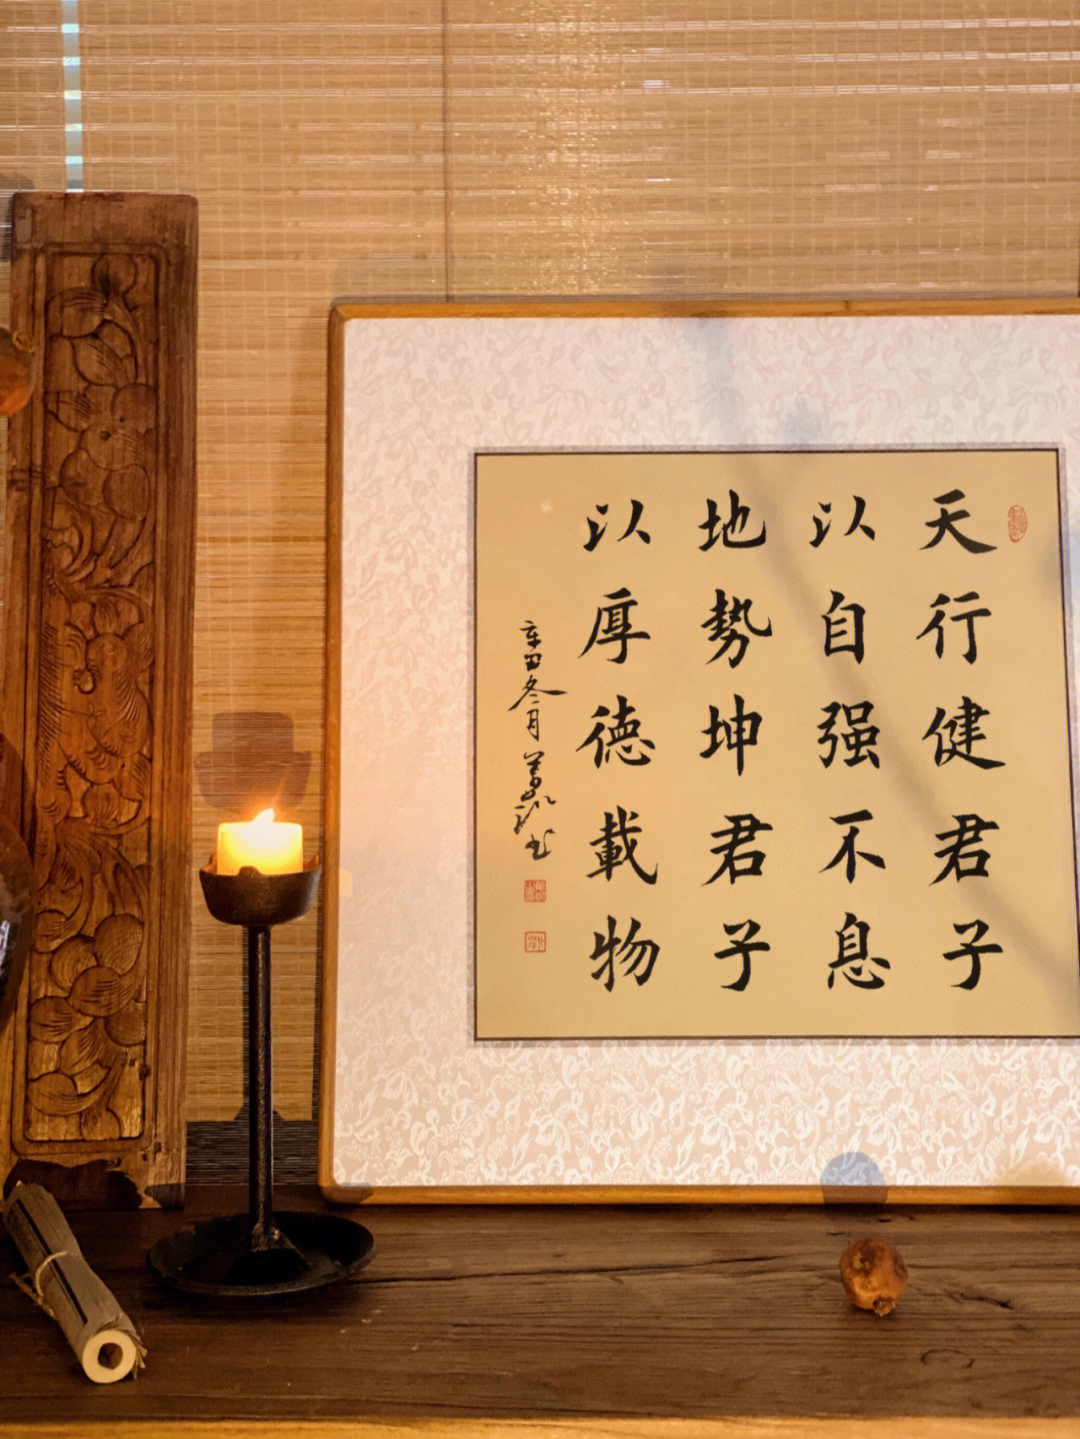 天行健君子
以自强不息
地勢坤君子
以厚德載物
辛丑冬月